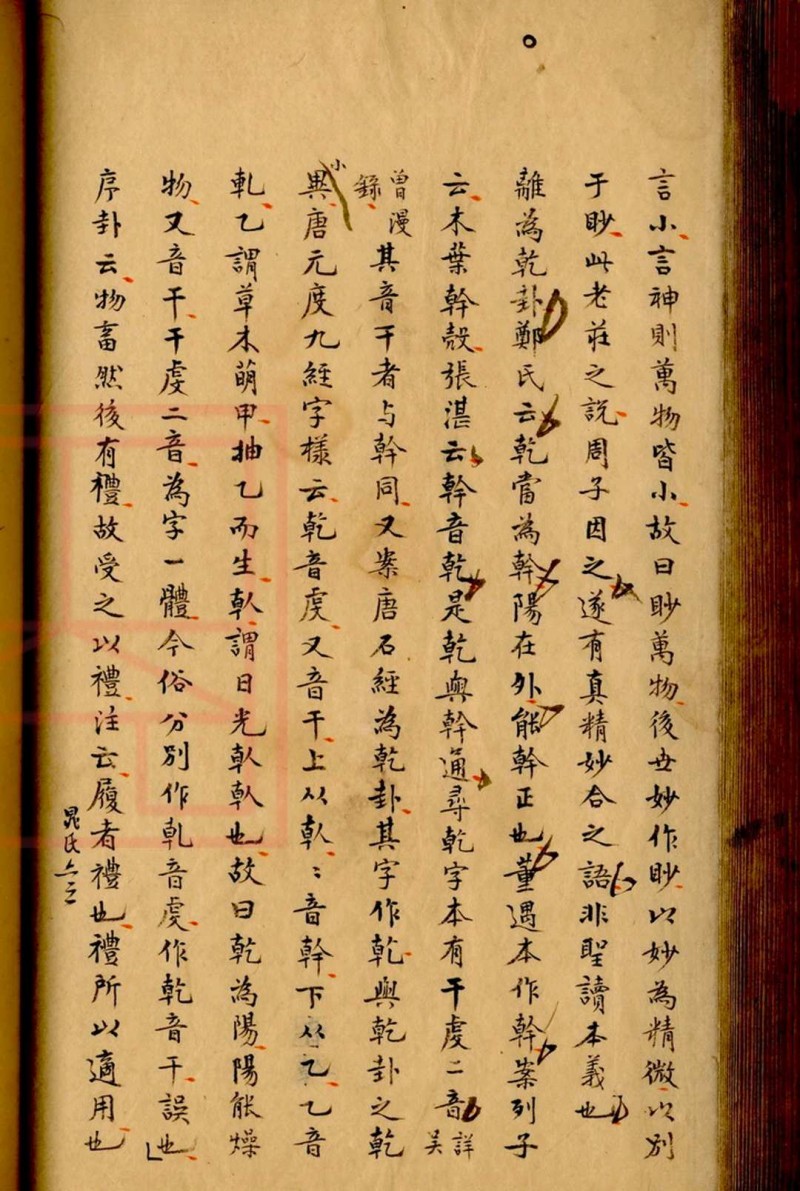 言小言神則萬物皆小故曰眇萬物後世妙作眇以妙為精微以別
于眇此老莊之説周子因之遂有真精妙合之語非聖讀本義也
離為乾卦鄭氏云乾當為幹陽在外能幹正也董遇本作幹案列子
云木葉幹殼張湛云幹音乾是乾與幹通尋乾字本有干虔二音詳吴
曾漫録其音干者与幹同又案唐石經為乾卦其字作乾與乾卦之乾
小
異唐元度九經字樣云乾音虔又音干上从倝〻音幹下从乙乙音
軋乙謂草木萌甲抽乙而生倝謂日光倝倝也故曰乾為陽陽能燥
物又音干干虔二音為字一體今俗分别作乹音虔作乾音干誤也
序卦云物畜然後有禮故受之以禮注云履者禮也禮所以適用也
晁氏云